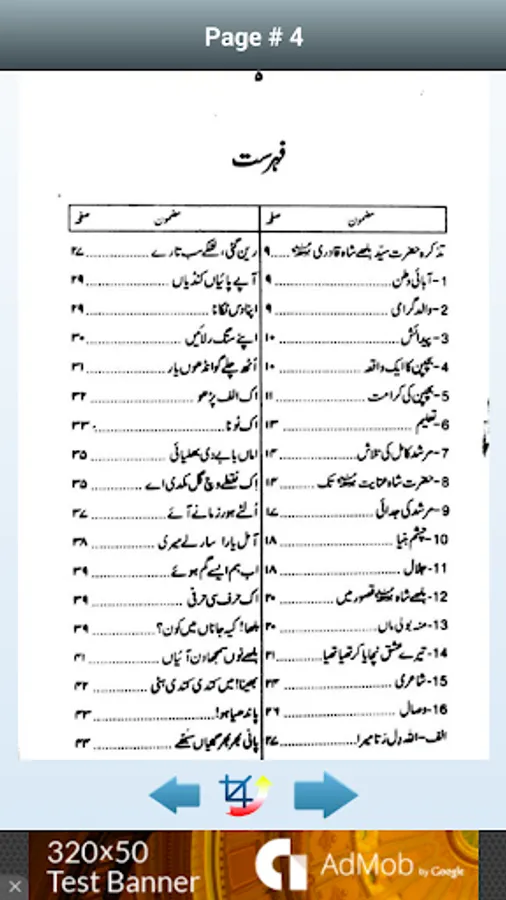 Page # 4
۵
فہرست
مضمون صفحہ
تذکرہ حضرت سیّد بلھے شاہ قادری ..... ۹
1- آبائی وطن ..... ۹
2- والد گرامی ..... ۹
3- پیدائش ..... ۱۰
4- بچپن کا ایک واقعہ ..... ۱۰
5- بچپن کی کرامت ..... ۱۱
6- تعلیم ..... ۱۳
7- مرشد کامل کی تلاش ..... ۱۴
8- حضرت شاہ عنایت تک ..... ۱۴
9- مرشد کی جدائی ..... ۱۷
10- چشم بینا ..... ۱۸
11- جلال ..... ۱۸
12- بلھے شاہ قصور میں ..... ۲۰
13- منہ بولی ماں ..... ۲۰
14- تیرے عشق نچایا کر تھیا تھیا ..... ۲۱
15- شاعری ..... ۲۴
16- وصال ..... ۲۶
الف- اللہ دل رتا میرا ..... ۲۷
مضمون صفحہ
رین گئی، لٹکے سب تارے ..... ۲۷
آپے پائیاں کنڈیاں ..... ۲۹
اپنا دس ٹکانا ..... ۲۹
اپنے سنگ رلائیں ..... ۳۰
اُٹھ چلے گوانڈھوں یار ..... ۳۱
اک الف پڑھو ..... ۳۲
اک ٹونا ..... ۳۳
اماں بابے دی بھلیائی ..... ۳۵
اِک نقطے وچ گل مکدی اے ..... ۳۵
اُلٹے ہور زمانے آئے ..... ۳۷
آ مل یارا سار لے میری ..... ۳۸
اب ہم ایسے گم ہوئے ..... ۳۹
اک حرف سی حرفی ..... ۳۹
بلھا! کیہ جاناں میں کون؟ ..... ۳۹
بلھے نوں سمجھاون آئیاں ..... ۴۱
بھینا! میں کتدی کتدی ہٹی ..... ۴۲
پاندھیا ہو! ..... ۴۳
پانی بھر بھر گئیاں سبھے ..... ۴۳
320×50
Test Banner
AdMob by Google